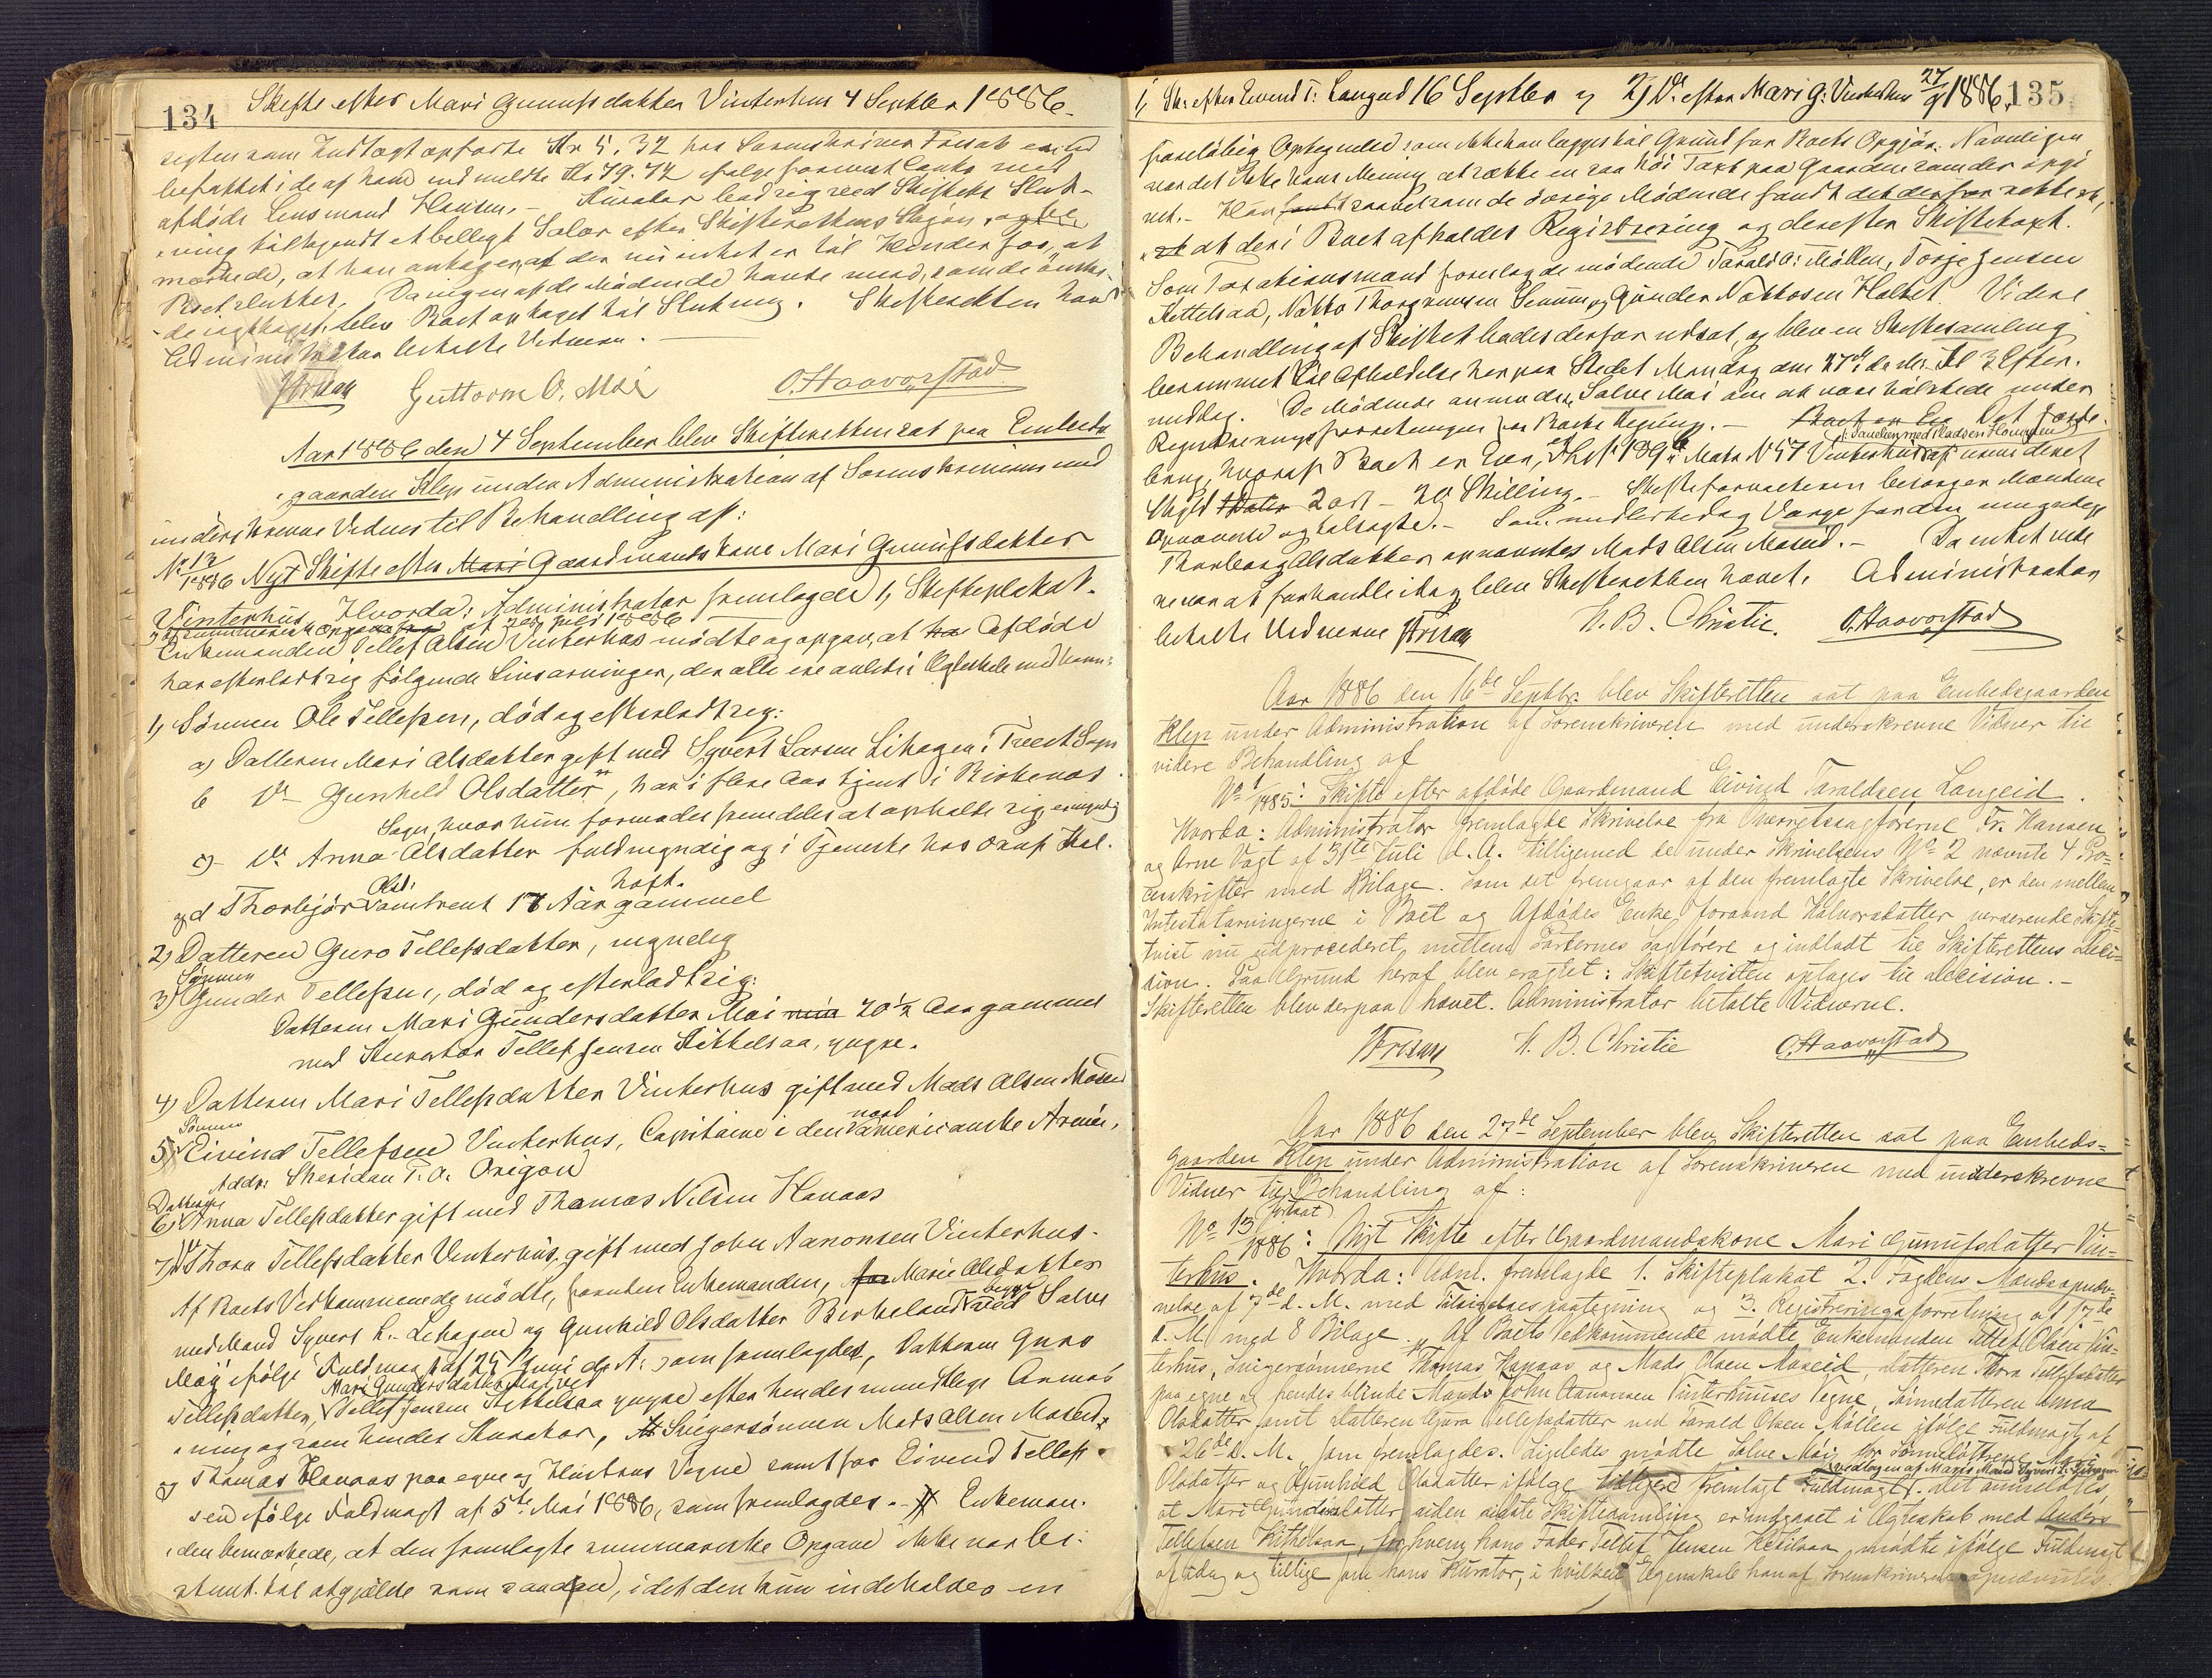 134
Skifte efter Mari Gunufsdatter Vinterhus 4 Septbr 1886.
som Indtægt opførte Kr 5.32 hos Sorenskriver
befattet i de af ham indmeldte Kr 79.72 ifølge med
afdøde Lensmand Hansen. - Kurator bad sig ved Skiftets Slut-
ning tillagt et billigt Salær efter Skifterettens Skjøn,
mærkede, at han antager, at der nu intet er til Hinder for, at
Boet sluttes. Da ingen af de Mødende havde mere, som de ønske-
de iagttaget, blev Boet optaget til Slutning. Skifteretten hævet
Administrator betalte Vidnerne.
Guttorm O. Moi O. Haavorstad
Aar 1886 den 4 September blev Skifteretten sat paa Embeds-
gaarden Klep under Administration af Sorenskriveren med
underskrevne Vidner til Behandling af:
No 13/1886 Nyt Skifte efter Mari Gaardmandskone Mari Gunufsdatter
Vinterhus Hvorda: Administrator fremlagde 1, Skifteplakat.
2, summarisk Opgave af Juli 1886
Enkemanden Tellef Olsen Vinterhus mødte og opgav, at Afdøde
har efterladt sig følgende Livsarvinger, der alle ere avlede i Ægteskab med ham:
1, Sønnen Ole Tellefsen, død og efterladt sig:
a) Datteren Mari Olsdatter gift med Syvert Larsen Lihagen i Treet Sogn
b Do Gunhild Olsdatter, har i flere Aar tjent i Birkenes
Sogn, hvor hun formodes fremdeles at opholde sig, umyndig
c) Do Anna Olsdatter fuldmyndig og i Tjeneste hos
og d Thorbjør Olsd: omtrent 17 Aar gammel
2) Datteren Guro Tellefsdatter, myndig
3) Sønnen Gunder Tellefsen, død og efterladt sig:
Datteren Mari Gundersdatter Moi 20 ½ Aar gammel
med Kurator Tellef Jensen Kittelsaa, yngre.
4) Datteren Mari Tellefsdatter Vinterhus gift med Mads Olsen Moseid
5) Sønnen Eivind Tellefsen Vinterhus, Capitaine i den nordamericanske Armée,
Addr: Sheridan P. O. Origon
6) Datteren Anna Tellefsdatter gift med Thomas Nilsen Hanaas
7) Do Thora Tellefsdatter Vinterhus, gift med John Aanonsen Vinterhus.
Af Boets Vedkommende mødte, foruden Enkemanden, for Marie Olsdatter
med Mand Syvert L. Lihagen og Gunhild Olsdatter Birkeland begge ved Salve
Moij ifølge Fuldmagt af 25 Juni d. A. som fremlagdes, Datteren Guro
Tellefsdatter, Mari Gundersdatter Moi ved Tellef Jensen Kittelsaa yngre efter hendes mundtlige Anmod-
ning og som hendes Kurator, Svigersønnen Mads Olsen Moseid
og Thomas Hanaas paa egne og Hustrus Vegne samt for Eivind Tellef-
sen ifølge Fuldmagt af 5te Mai 1886, som fremlagdes. - Enkeman-
den bemærkede, at den fremlagte summariske Opgave ikke var be-
stemt til at gjælde som saadan, idet den kun indeholder en
1, Sk. efter Eivind T. Langeid 16 Septbr og 2) Do efter Mari G. Vinterhus 27/9 1886. 135
foreløbig Optegnelse som ikke kan lægges til Grund for Boets Opgjør. Navnligen
var det ikke hans Mening at sætte en saa høi Taxt paa Gaarden som der opgi-
vet. - Han saavelsom de øvrige Mødende fandt det derfor rettest,
at der i Boet afholdes Registrering og derefter Skiftetaxt.
Som Taxationsmænd foreslog de mødende Tarald O. Møllen, Torje Jensen
Kettelsaa, Natto Thorgrimsen Senum og Gunder Nattosen Haltet. Videre
Behandling af Skiftet bades derfor udsat, og blev en Skiftesamling
berammet til Afholdelse her paa Stedet Mandag den 27de ds. Kl 3 Efter-
middag. De Mødende anmodede Salve Moi om at være tilstede under
Registreringsforretningen paa Boets Vegne. - Det Jorde-
brug, hvoraf Boet er Eier, er Lb. N 139 Matr N 57 Vinterhus (: Tandem med Pladsen Honemyr af uomrdenet
Skyld 2 ort - 20 Skilling. - Skifteforvalteren besørger Mændene
opnævnte og tilsagte. - Som midlertidig Værge for den umyndige
Thorborg Olsdatter opnævntes Mads Olsen Moseid. - Da intet vide-
re var at forhandle idag blev Skifteretten hævet. Administrator
betalte Vidnerne H. B. Christie. O. Haavorstad
Aar 1886 den 16de Septbr. blev Skifteretten sat paa Embedsgaarden
Klep under Administration af Sorenskriveren med underskrevne Vidner til
videre Behandling af
No 1/1885: Skifte efter afdøde Gaardmand Eivind Taraldsen Langeid.
Hvorda: Administrator fremlagde Skrivelse fra Overretssagførerne Fr. Hansen
og Arne Vagt af 31te Juli d. A. tilligemed de under Skrivelsens No 2 nævnte 4 Pro-
cesskrifter med Bilage. Som det fremgaar af den fremlagte Skrivelse, er den mellem
Intestatarvingerne i Boet og Afdødes Enke, Joraand Halvorsdatter verserende Skifte-
tvist nu udprocederet mellem Parternes Sagførere og indladt til Skifterettens Deci-
sion. Paa Grund heraf blev eragtet: Skiftetvisten optages til Decision. -
Skifteretten blev derpaa hævet. Administrator betalte Vidnerne.
H. B. Christie O. Haavorstad
Aar 1886 den 27de September blev Skifteretten sat paa Embeds-
gaarden Klep under Administration af Sorenskriveren med underskrevne
Vidner til fortsat Behandling af:
No 13/1886: Nyt Skifte efter Gaardmandskone Mari Gunufsdatter Vin-
terhus. Hvorda: Adm. fremlagde 1. Skifteplakat 2. Fogdens Mandsopnæv-
nelse af 7de d. M. med Tilsigelsespaategning og 3. Registreringsforretning af 17de
d. M. med 8 Bilage. Af Boets Vedkommende mødte Enkemanden Tellef Olsen Vin-
terhus, Svigersønnerne Thomas Hanaas og Mads Olsen Moseid, Datteren Thora Tellefsdatter
paa egne og hendes blinde Mands John Aanonsen Vinterhuses Vegne, Sønnedatteren Anna
Olsdatter samt Datteren Guro Tellefsdatter ved Tarald Olsen Møllen ifølge Fuldmagt af
26de d. M. som fremlagdes. Ligeledes mødte Salve Moi for Sønnedøttrene Mari
Olsdatter og Gunhild Olsdatter ifølge tidligere fremlagt Fuldmagt, vedtagen af Maris Mand Syvert L. Lihagen. Det anmeldtes,
at Mari Gundersdatter siden sidste Skiftesamling er indgaaet i Ægteskab med Anders
Tellefsen Kittelsaa, for hvem hans Fader Tellef Jensen Ketilsaa mødte ifølge Fuldmagt
af idag og tillige som hans Kurator, i hvilken Egenskab han af Sorenskriveren opnævntes.